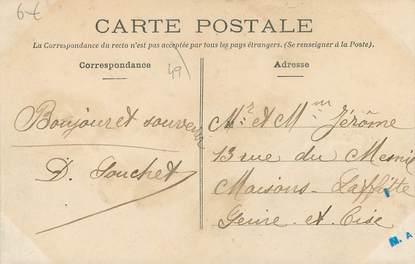 6 €
CARTE POSTALE
La Correspondance du recto n'est pas acceptée par tous les pays étrangers. (Se renseigner à la Poste).
Correspondance
49
Adresse
Bonjour et souvenir
D. Souchet
Mr et Mme Jérôme
13 rue du Mesnil
Maisons-Laffitte
Seine et Oise
N. A